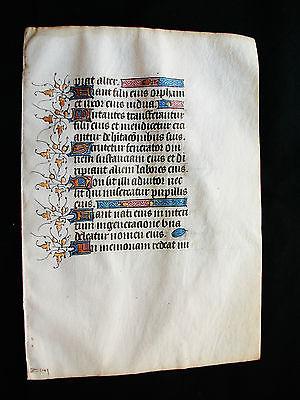 piat alter.
Fiant filii eius orphani
et uxor eius uidua.
Nutantes transferantur
filii eius et mendicetur et ei
antur de hitacionibus suis.
Scrutetur fenerator om
nem substanciam eius et di
ripiant alieni labores eius
Non sit illi adiutor nec
sit qui misereatur pupillis
eius.
Fiant nati eius in interi
tum in generacione una
deleatur nomen eius.
In memoriam redeat ini